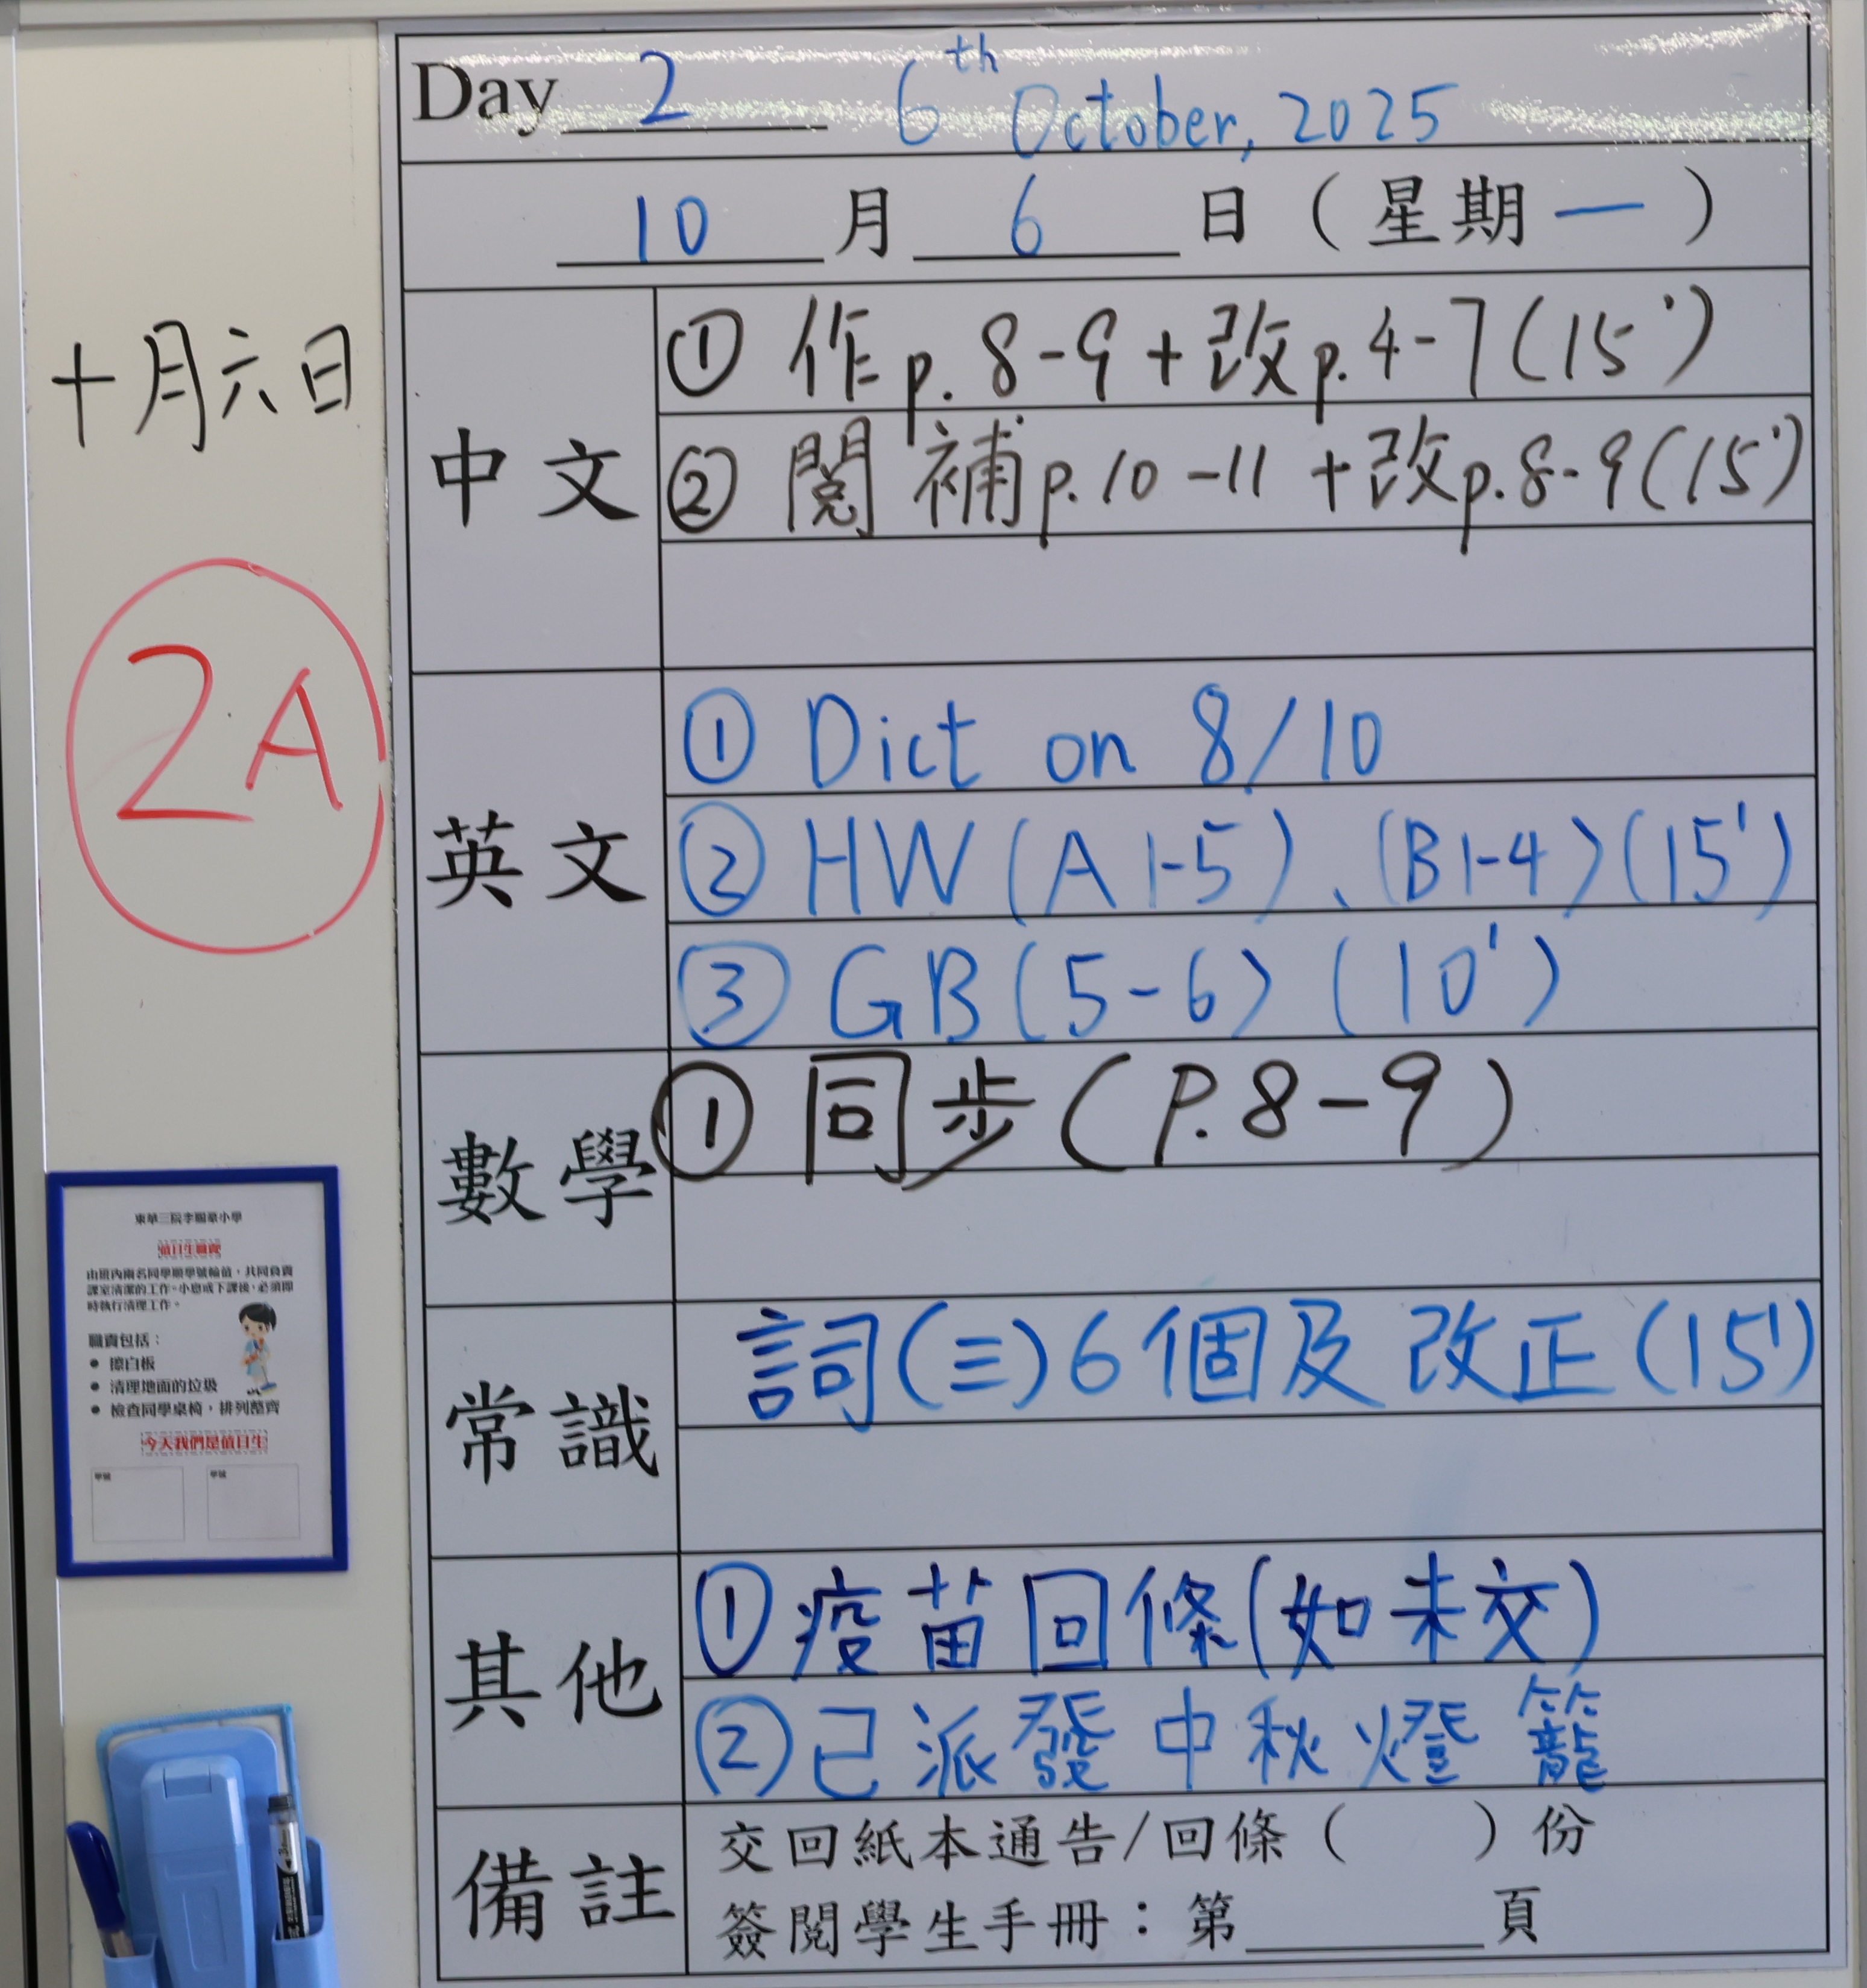 Day 2 6th October, 2025
10 月 6 日（星期一）
十月六日
2A
中文
① 作p.8-9+改p.4-7(15')
② 閱補p.10-11+改p.8-9(15')
英文
① Dict on 8/10
② HW(A1-5)、(B1-4)(15')
③ GB(5-6) (10')
數學
① 同步(P.8-9)
常識
詞(三)6個及改正(15')
其他
①疫苗回條(如未交)
②已派發中秋燈籠
備註
交回紙本通告/回條（ ）份
簽閱學生手冊：第______頁
值日生職責
由班內兩名同學順學號輪值，共同負責
課室清潔的工作。小息或下課後，必須即
時執行清理工作。
職責包括：
● 擦白板
● 清理地面的垃圾
● 檢查同學桌椅，排列整齊
今天我們是值日生
學號 學號